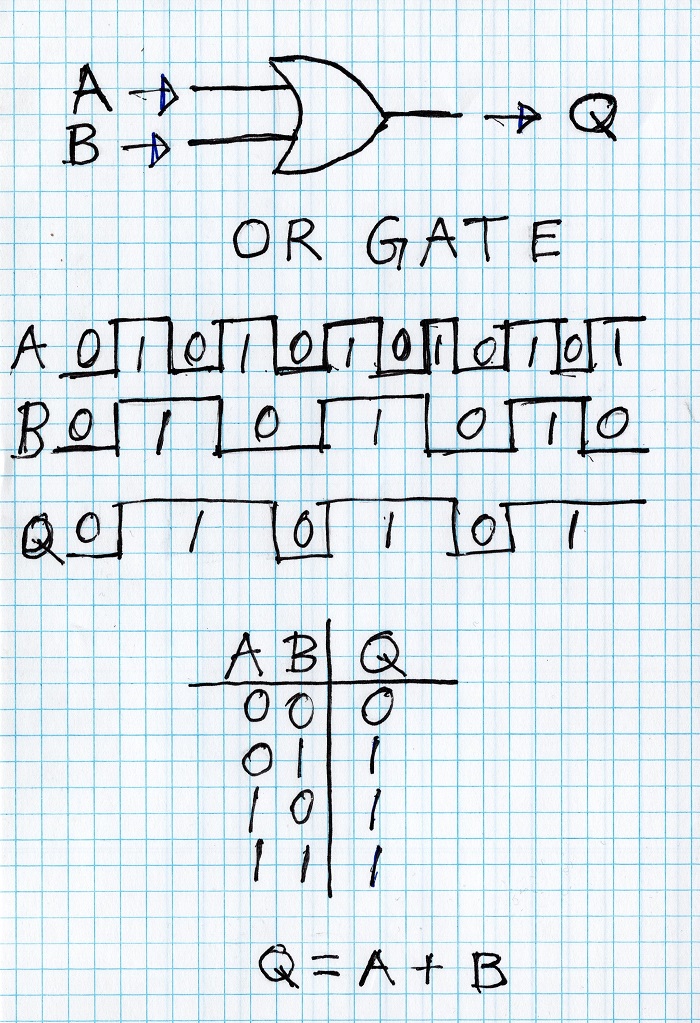 A
B
Q
OR GATE
A 0 1 0 1 0 1 0 1 0 1 0 1
B 0 1 0 1 0 1 0
Q 0 1 0 1 0 1
A B Q
0 0 0
0 1 1
1 0 1
1 1 1
Q = A + B